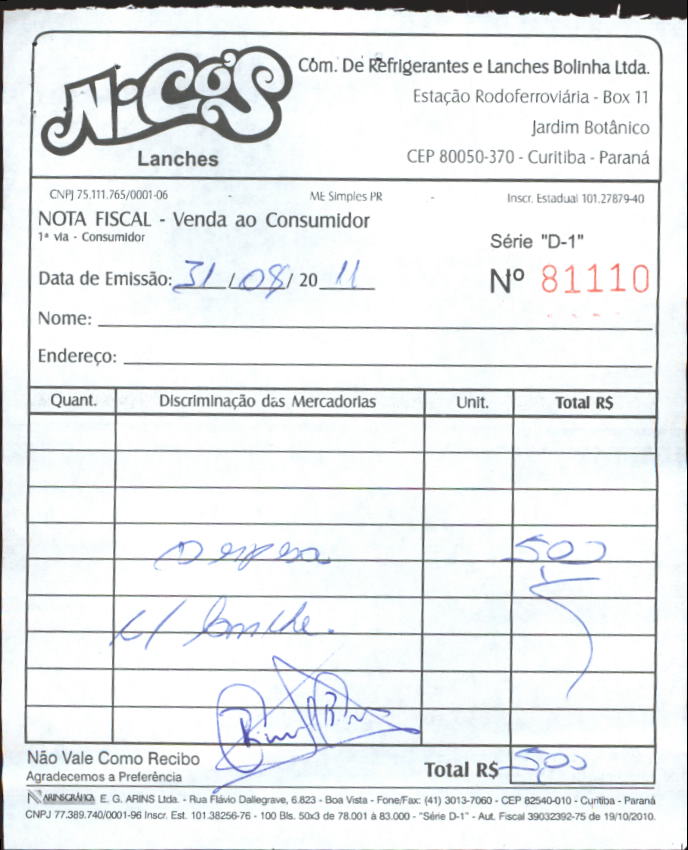 Nico's
Lanches
Com. De Refrigerantes e Lanches Bolinha Ltda.
Estação Rodoferroviária - Box 11
Jardim Botânico
CEP 80050-370 - Curitiba - Paraná
CNPJ 75.111.765/0001-06 ME Simples PR - Inscr. Estadual 101.27879-40
NOTA FISCAL - Venda ao Consumidor
1ª via - Consumidor
Série "D-1"
Data de Emissão: 31/08/2011 Nº 81110
Nome:
Endereço:
Quant. Discriminação das Mercadorias Unit. Total R$
Despesa 5,00
c/ lanche.
Não Vale Como Recibo
Agradecemos a Preferência
Total R$ 5,00
ARINSGRÁFICA E. G. ARINS Ltda. - Rua Flávio Dallegrave, 6.823 - Boa Vista - Fone/Fax: (41) 3013-7060 - CEP 82540-010 - Curitiba - Paraná
CNPJ 77.389.740/0001-96 Inscr. Est. 101.38256-76 - 100 Bls. 50x3 de 78.001 à 83.000 - "Série D-1" - Aut. Fiscal 39032392-75 de 19/10/2010.